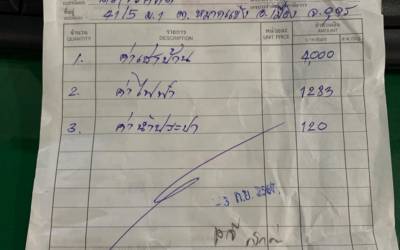 ที่อยู่ 41/5 ม.1 ต.หมากแข้ง อ.เมือง จ.อุดร
จำนวน รายการ หน่วยละ จำนวนเงิน
QUANTITY DESCRIPTION UNIT PRICE AMOUNT
1. ค่าเช่าบ้าน 4,000
2. ค่าไฟฟ้า 1283
3. ค่าน้ำประปา 120
-3 ก.ย. 2567